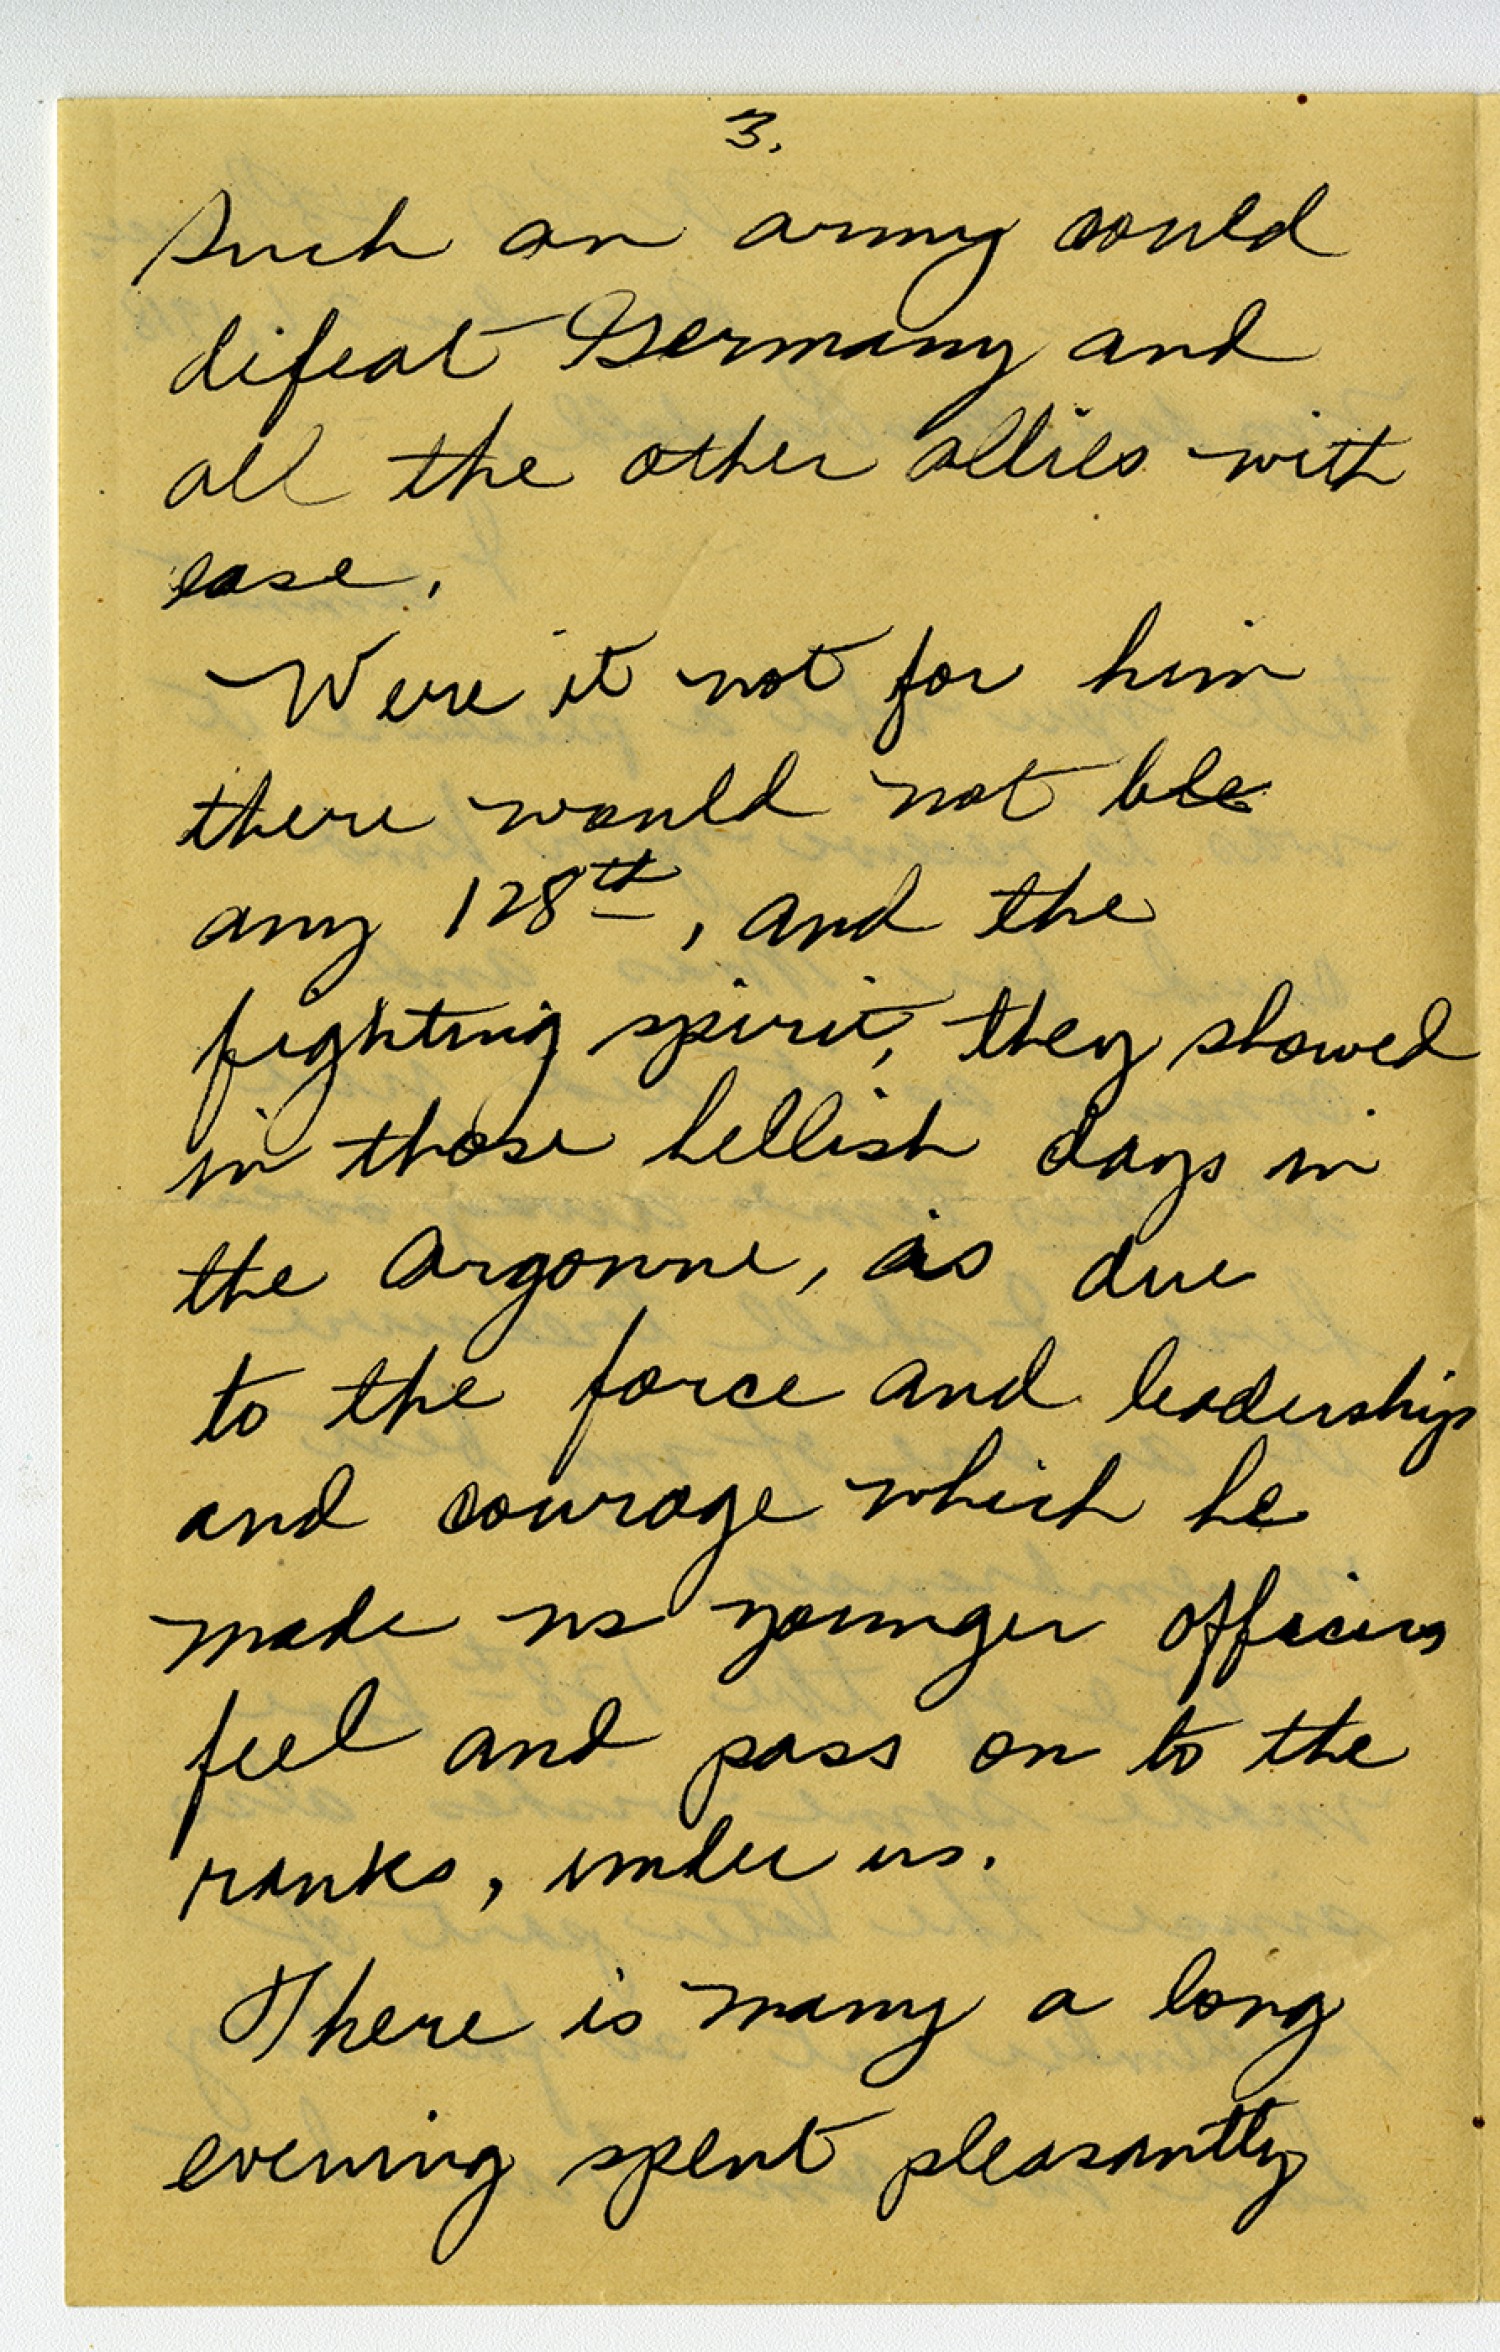 3.
Such an army could
difeat Germany and
all the other allies with
ease.
Were it not for him
there would not be
any 128th, and the
fighting spirit, they showed
in those hellish days in
the Argonne, is due
to the force and leadership
and courage which he
made us younger officers
feel and pass on to the
ranks, under us.
There is many a long
evening spent pleasantly